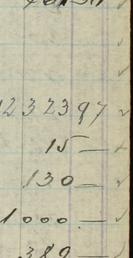 2 3 2 3 9 7
15 —
130 —
1000 —
380 —